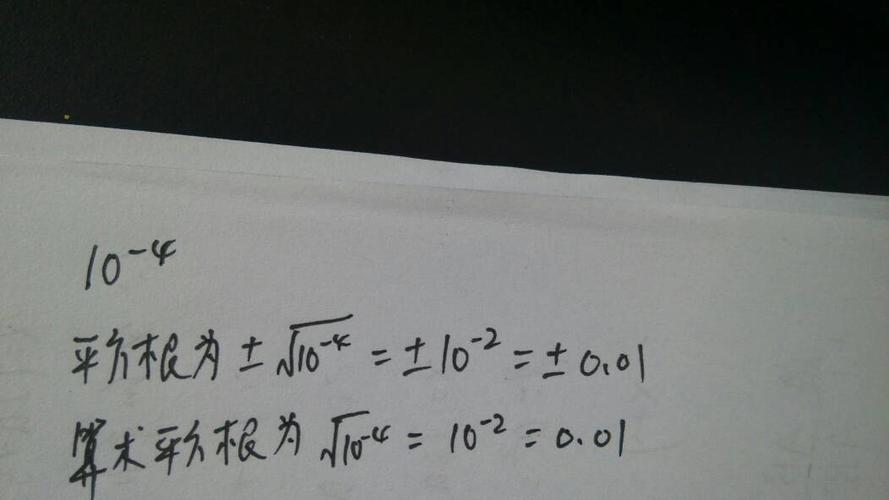 10⁻⁴
平方根为±√10⁻⁴ = ±10⁻² = ±0.01
算术平方根为√10⁻⁴ = 10⁻² = 0.01